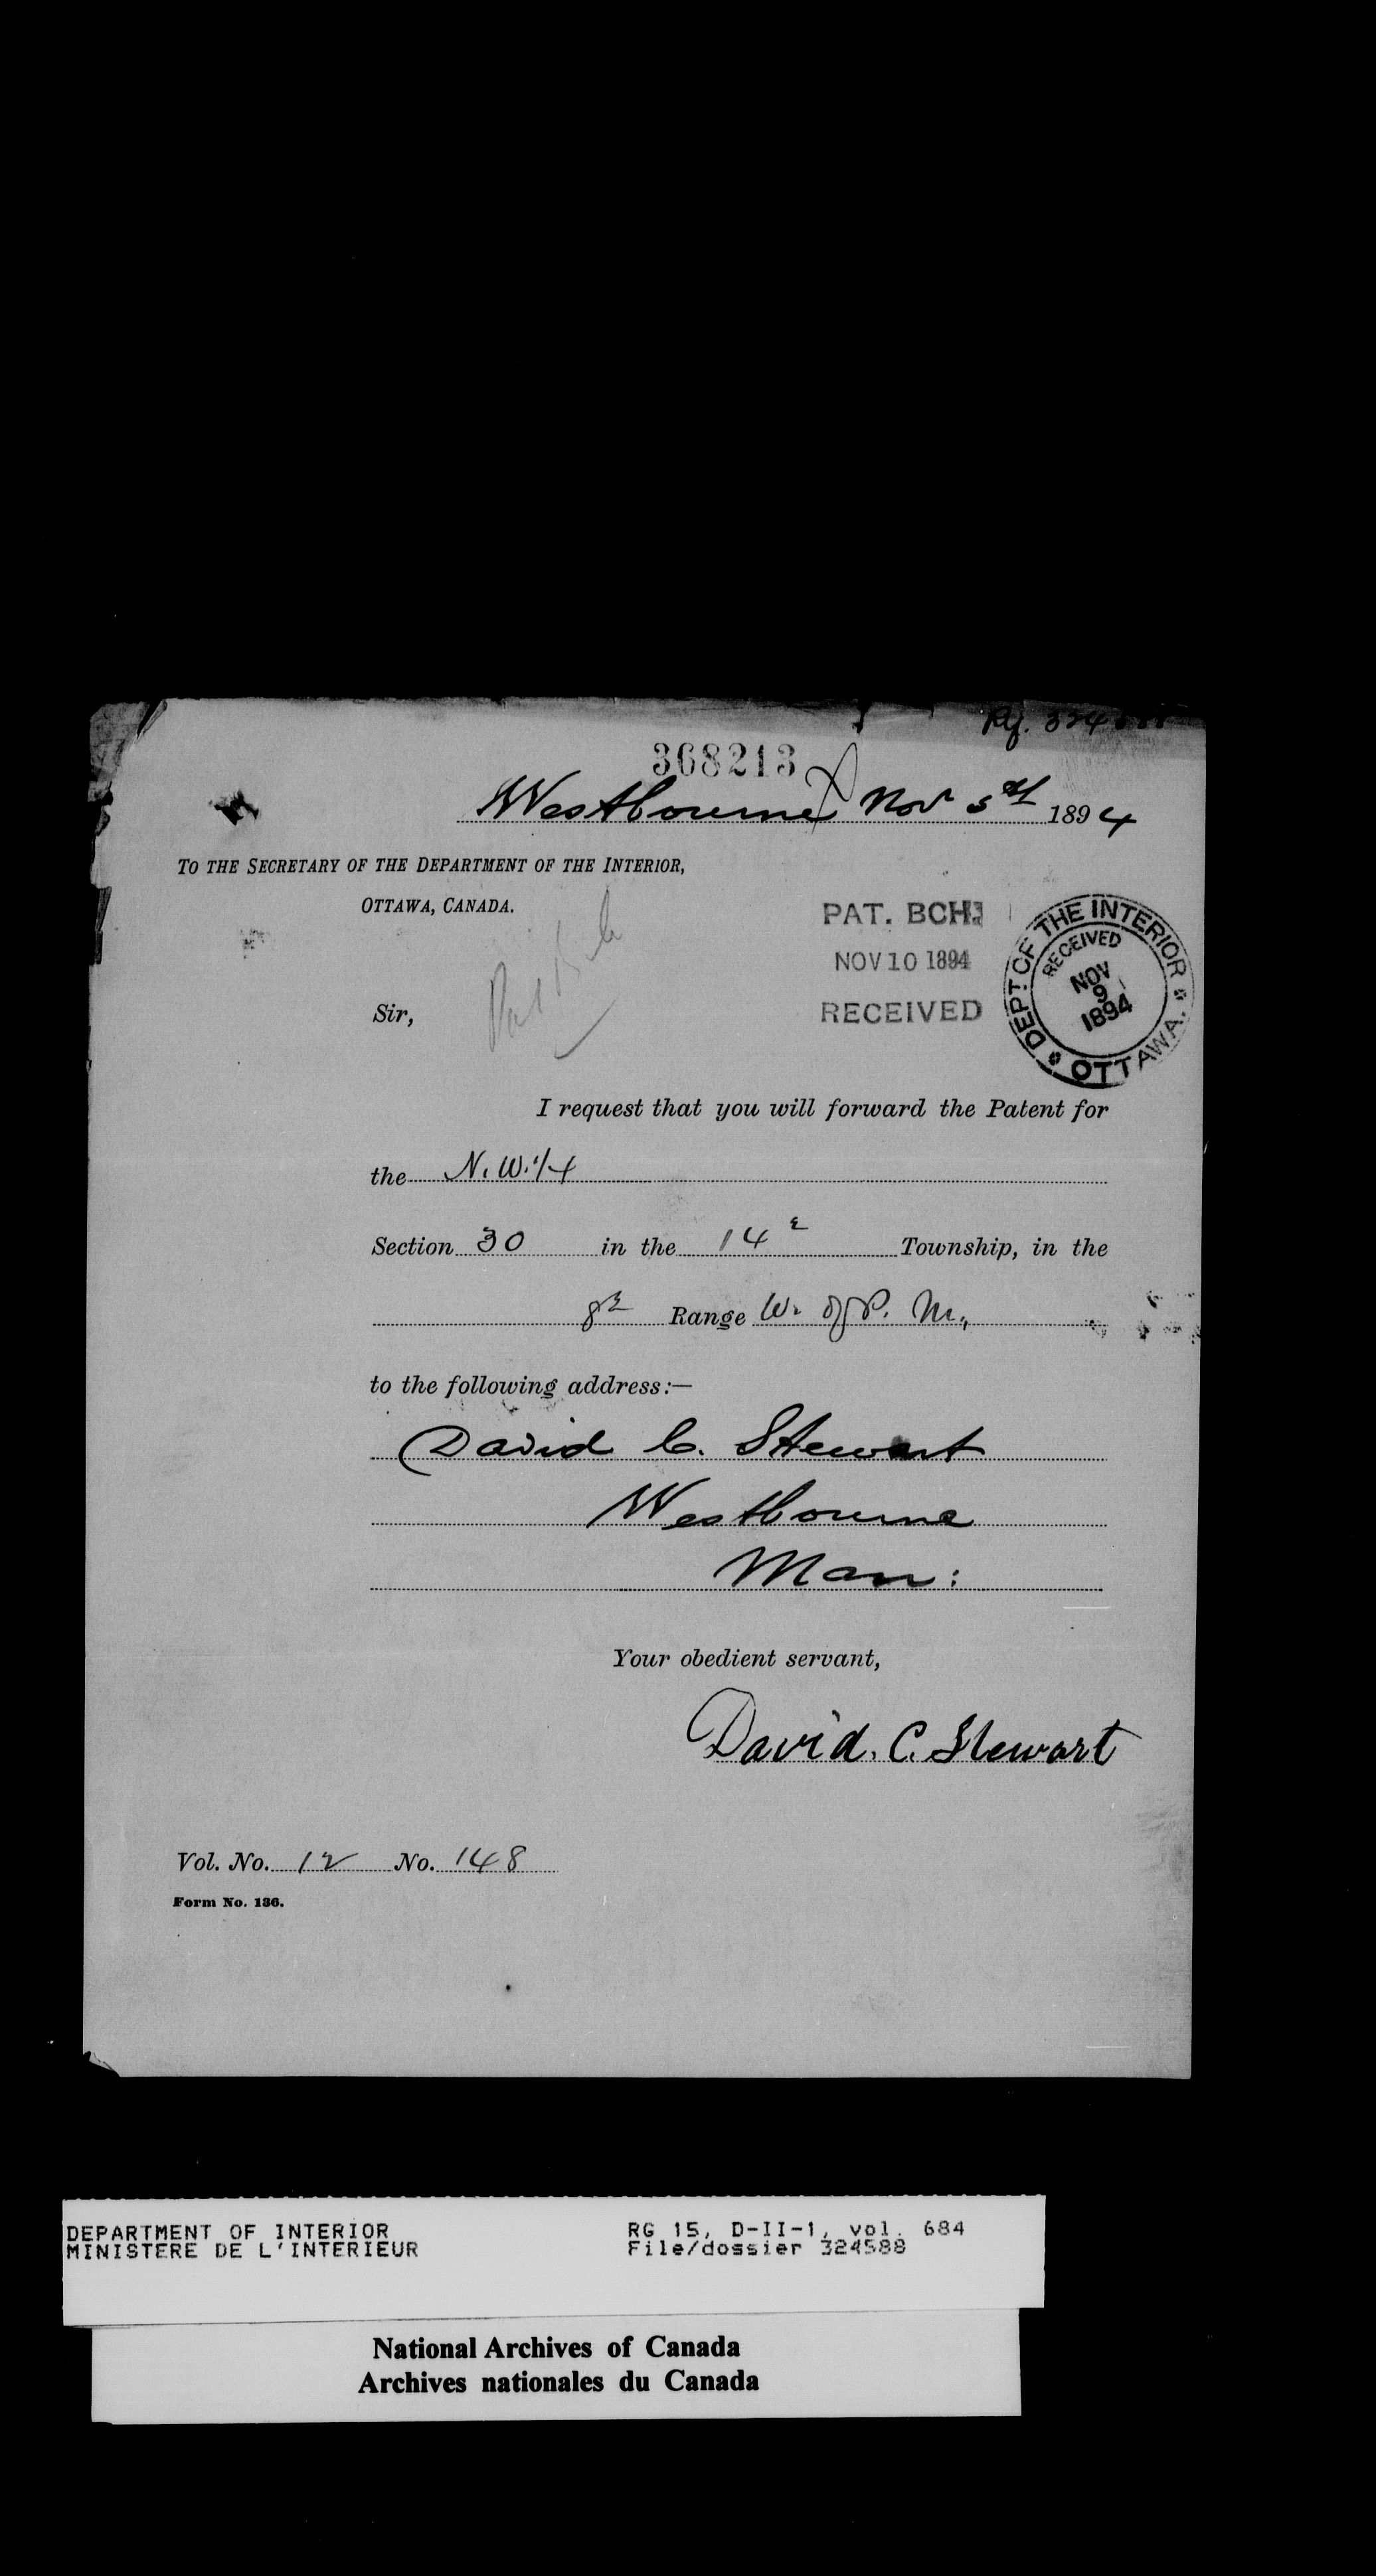 Rf. 324588
368213
Westbourne Nov 5th 1894
TO THE SECRETARY OF THE DEPARTMENT OF THE INTERIOR,
OTTAWA, CANADA.
PAT. BCH.
NOV 10 1894
RECEIVED
DEPT OF THE INTERIOR
RECEIVED
NOV
9
1894
OTTAWA.
Pat Bch
Sir,
I request that you will forward the Patent for
the N. W. 1/4
Section 30 in the 14th Township, in the
8th Range W. of P. M.,
to the following address:—
David C. Stewart
Westbourne
Man:
Your obedient servant,
David. C. Stewart
Vol. No. 12 No. 148
Form No. 136.
DEPARTMENT OF INTERIOR
MINISTERE DE L'INTERIEUR
RG 15, D-II-1, vol. 684
File/dossier 324588
National Archives of Canada
Archives nationales du Canada